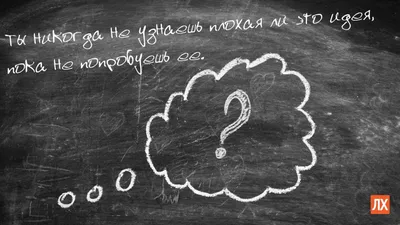 Ты никогда не узнаешь плохая ли это идея,
пока не попробуешь ее.
?
ЛХ